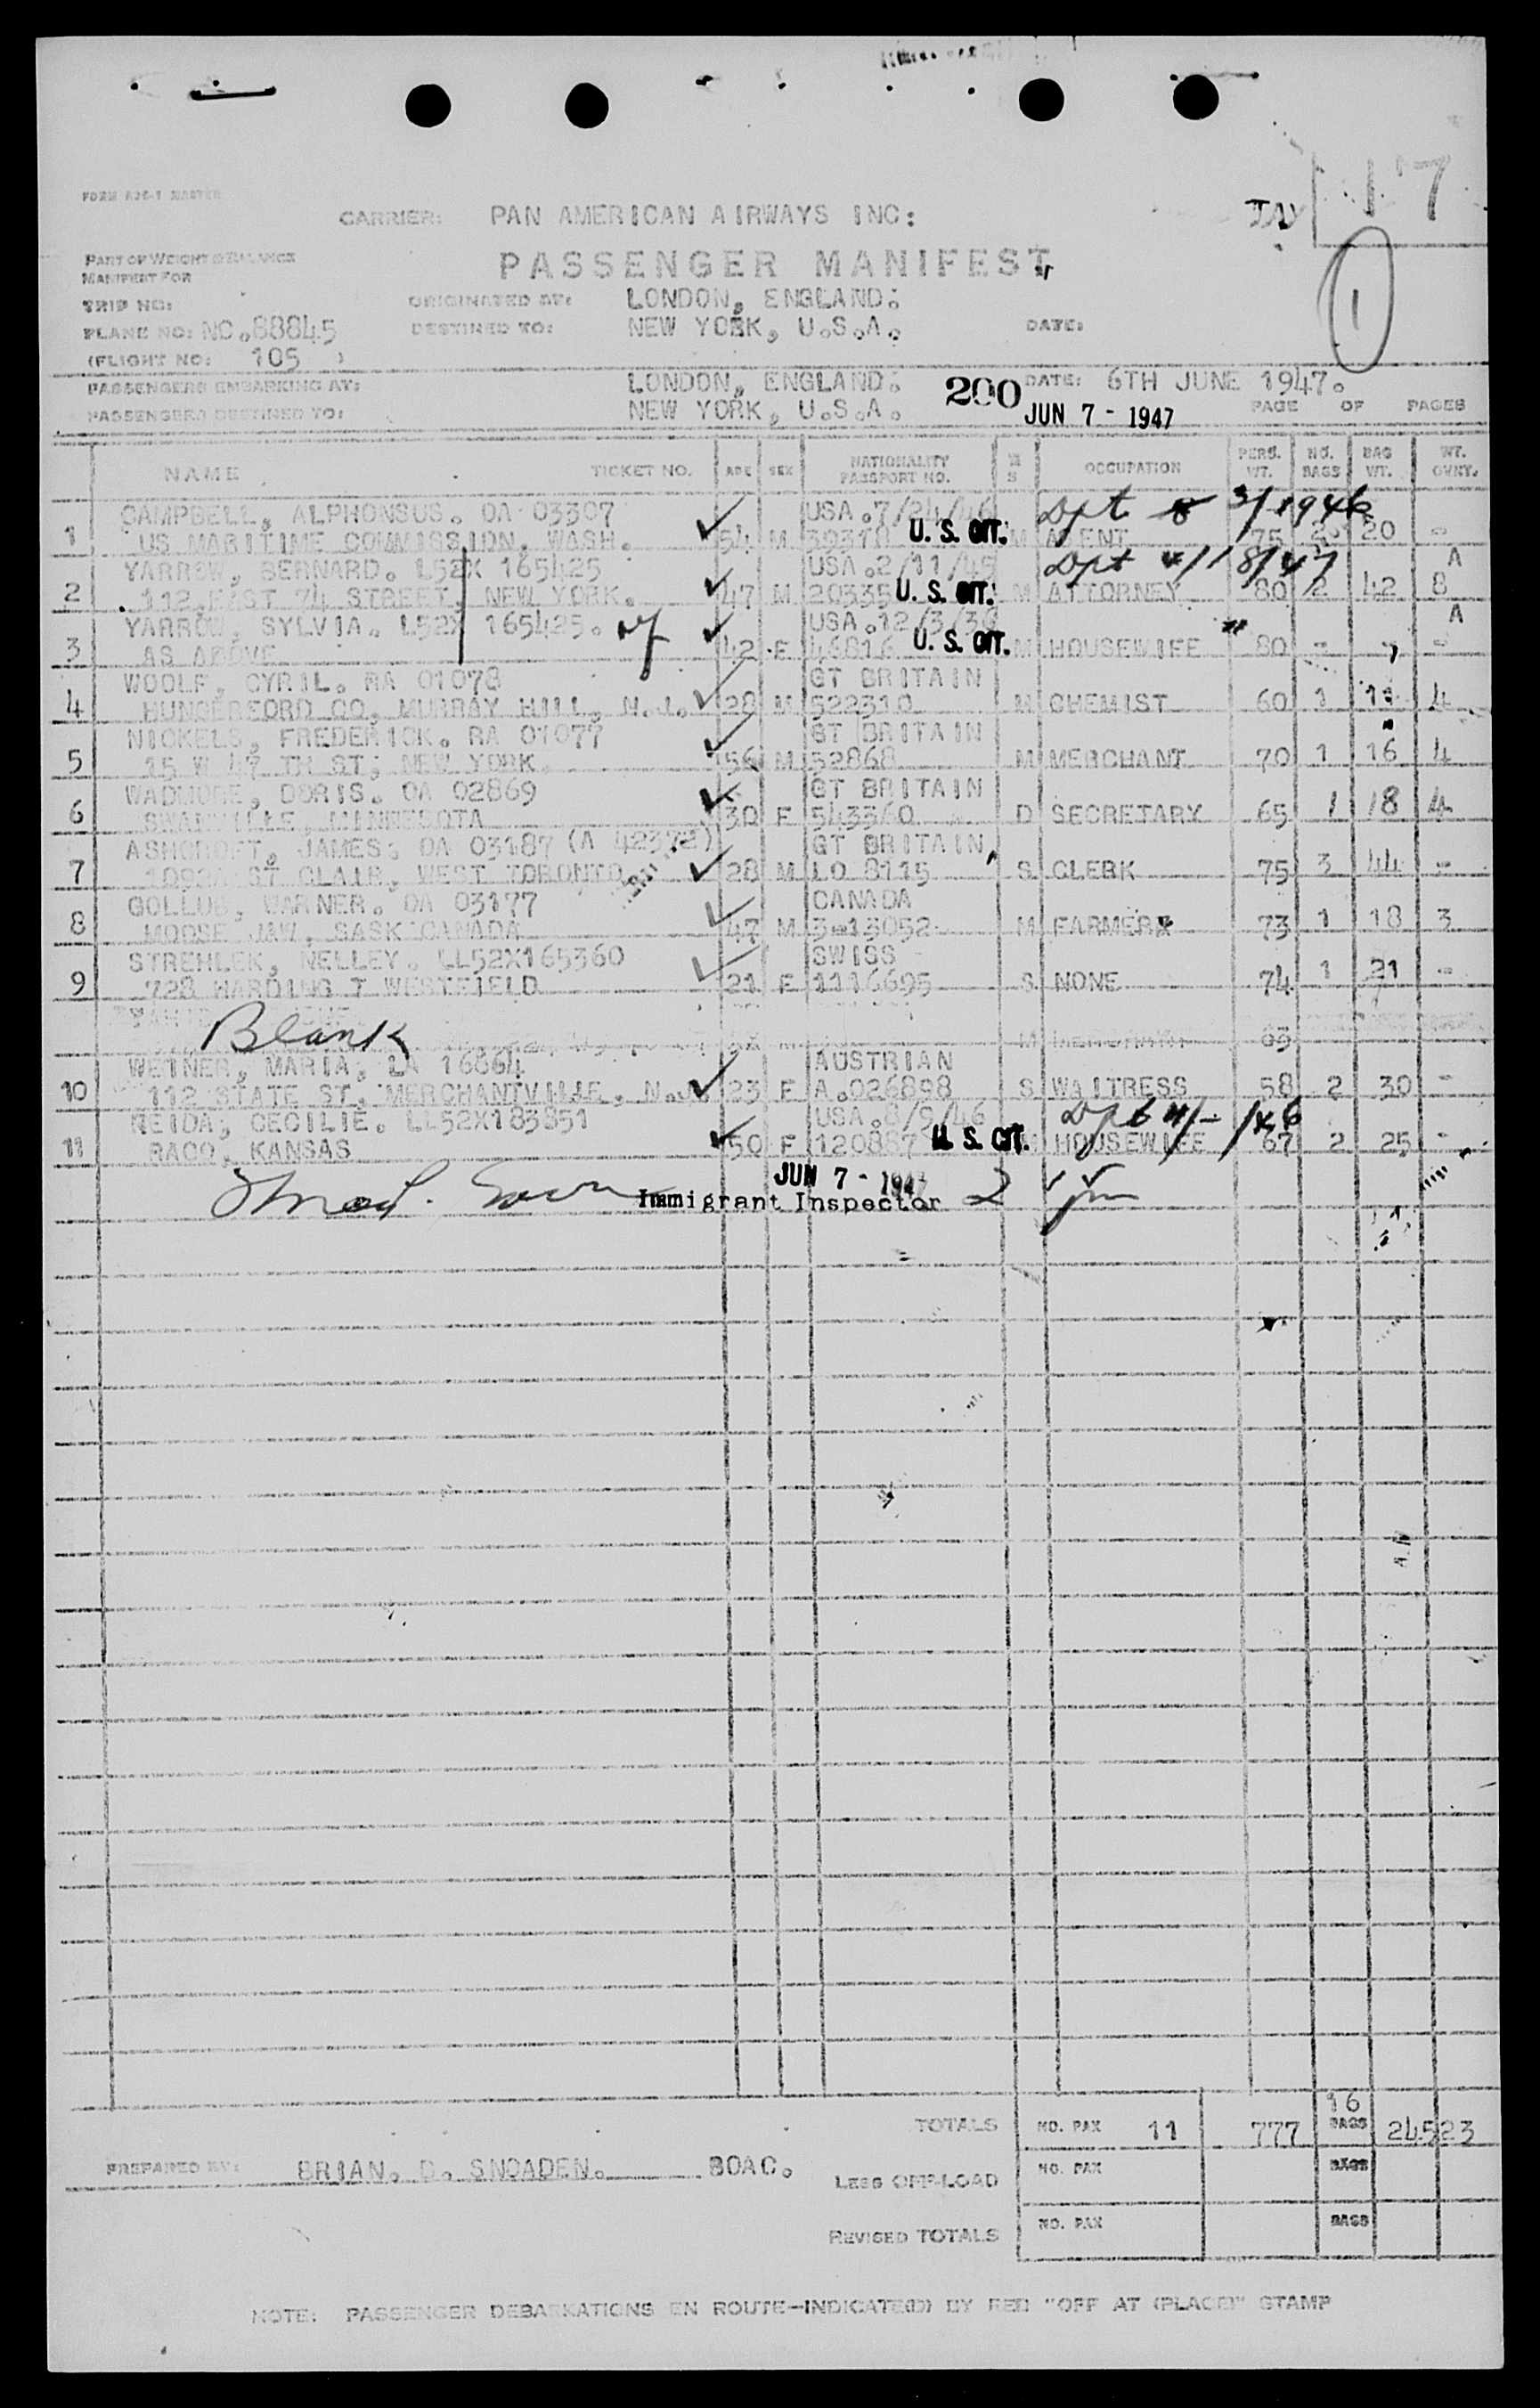 FORM A26-1 MASTER
CARRIER: PAN AMERICAN AIRWAYS INC:
17
PART OF WEIGHT & BALANCE
MANIFEST FOR
PASSENGER MANIFEST
1
TRIP NO: ORIGINATED AT: LONDON, ENGLAND.
PLANE NO: NC.88845 DESTINED TO: NEW YORK, U.S.A. DATE:
(FLIGHT NO: 105 )
PASSENGERS EMBARKING AT: LONDON, ENGLAND. 200 DATE: 6TH JUNE 1947.
PASSENGERS DESTINED TO: NEW YORK, U.S.A. JUN 7 - 1947 PAGE OF PAGES
NAME TICKET NO. AGE SEX NATIONALITY PASSPORT NO. M S OCCUPATION PERS. WT. NO. BAGS BAG WT. WT. OVNT.
CAMPBELL, ALPHONSUS. OA 03307 USA.7/24/46 Dpt 3/1946
1 US MARITIME COMMISSION, WASH. 54 M 39318 U. S. CIT. M AGENT 75 2 20 -
YARROW, BERNARD. L52X 165425 USA.2/11/45 Dpt 4/18/47 A
2 112 EAST 74 STREET, NEW YORK. 47 M 20335 U. S. CIT. M ATTORNEY 80 2 42 8
YARROW, SYLVIA. L52X 165425. USA.12/3/30 A
3 AS ABOVE 42 F 46816 U. S. CIT. M HOUSEWIFE 80 - - -
WOOLF, CYRIL. RA 01078 GT BRITAIN
4 HUNGERFORD CO, MURRAY HILL, N.J. 28 M 522310 M CHEMIST 60 1 11 4
NICKELS, FREDERICK. RA 01077 GT BRITAIN
5 15 W 47 TH ST, NEW YORK 56 M 52868 M MERCHANT 70 1 16 4
WADMORE, DORIS. OA 02869 GT BRITAIN
6 SWANVILLE, MINNESOTA 30 F 543360 D SECRETARY 65 1 18 4
ASHCROFT, JAMES. OA 03187 (A 42372) GT BRITAIN
7 1092A ST CLAIR, WEST TORONTO 28 M LO 8115 S CLERK 75 3 44 -
GOLLUB, WARNER. OA 03177 CANADA
8 MOOSE JAW, SASK CANADA 47 M 3-13052 M FARMER 73 1 18 3
STREHLEK, NELLEY. LL52X165360 SWISS
9 728 HARDING T WESTFIELD 21 F 1116695 S NONE 74 1 21 -
Blank M 83
WEINER, MARIA, LA 16864 AUSTRIAN
10 112 STATE ST, MERCHANTVILLE, N.J. 23 F A.026898 S WAITRESS 58 2 30 -
NEIDA, CECILIE. LL52X183851 USA.8/9/46 Dpt
11 RAGO, KANSAS 50 F 120887 U. S. CIT. HOUSEWIFE 67 2 25 -
JUN 7 - 1947
Immigrant Inspector 2
16
TOTALS NO. PAX 11 777 BAGS 24523
PREPARED BY: BRIAN. D. SNOADEN. BOAC.
LESS OFF-LOAD NO. PAX BAGS
REVISED TOTALS NO. PAX BAGS
NOTE: PASSENGER DEBARKATIONS EN ROUTE-INDICATE(D) BY RED "OFF AT (PLACE)" STAMP